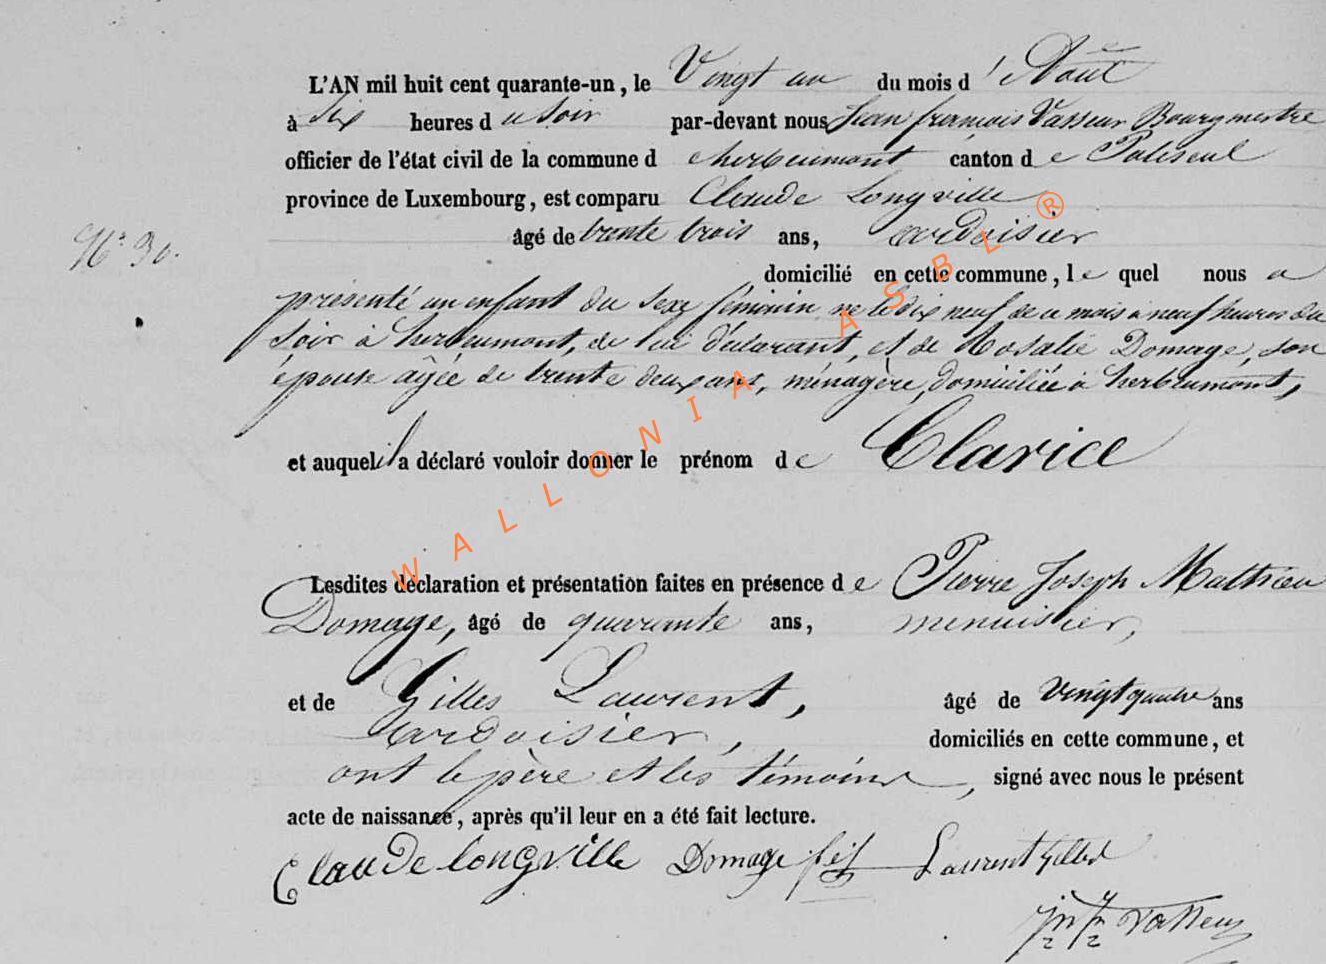 L'AN mil huit cent quarante-un, le Vingt un du mois d'Aout
à six heures du soir par-devant nous Jean françois Vasseur Bourgmestre
officier de l'état civil de la commune d'herbeumont canton de Paliseul
province de Luxembourg, est comparu Claude Longville
âgé de trente trois ans, ardoisier
N° 30.
domicilié en cette commune, le quel nous a
présenté un enfant du sexe féminin né le dix neuf de ce mois à neuf heures du
soir à herbeumont, de lui déclarant, et de Rosalie Domage, son
épouse âgée de trente deux ans, ménagère, domiciliée à herbeumont,
et auquel il a déclaré vouloir donner le prénom de Clarice
Lesdites déclaration et présentation faites en présence de Pierre Joseph Mathieu
Domage, âgé de quarante ans, menuisier,
et de Gilles Laurent, âgé de Vingt quatre ans
ardoisier, domiciliés en cette commune, et
ont le père et les témoins, signé avec nous le présent
acte de naissance, après qu'il leur en a été fait lecture.
Claude longville Domage Laurent gilles
Vasseur
WALLONIA ASBL ®